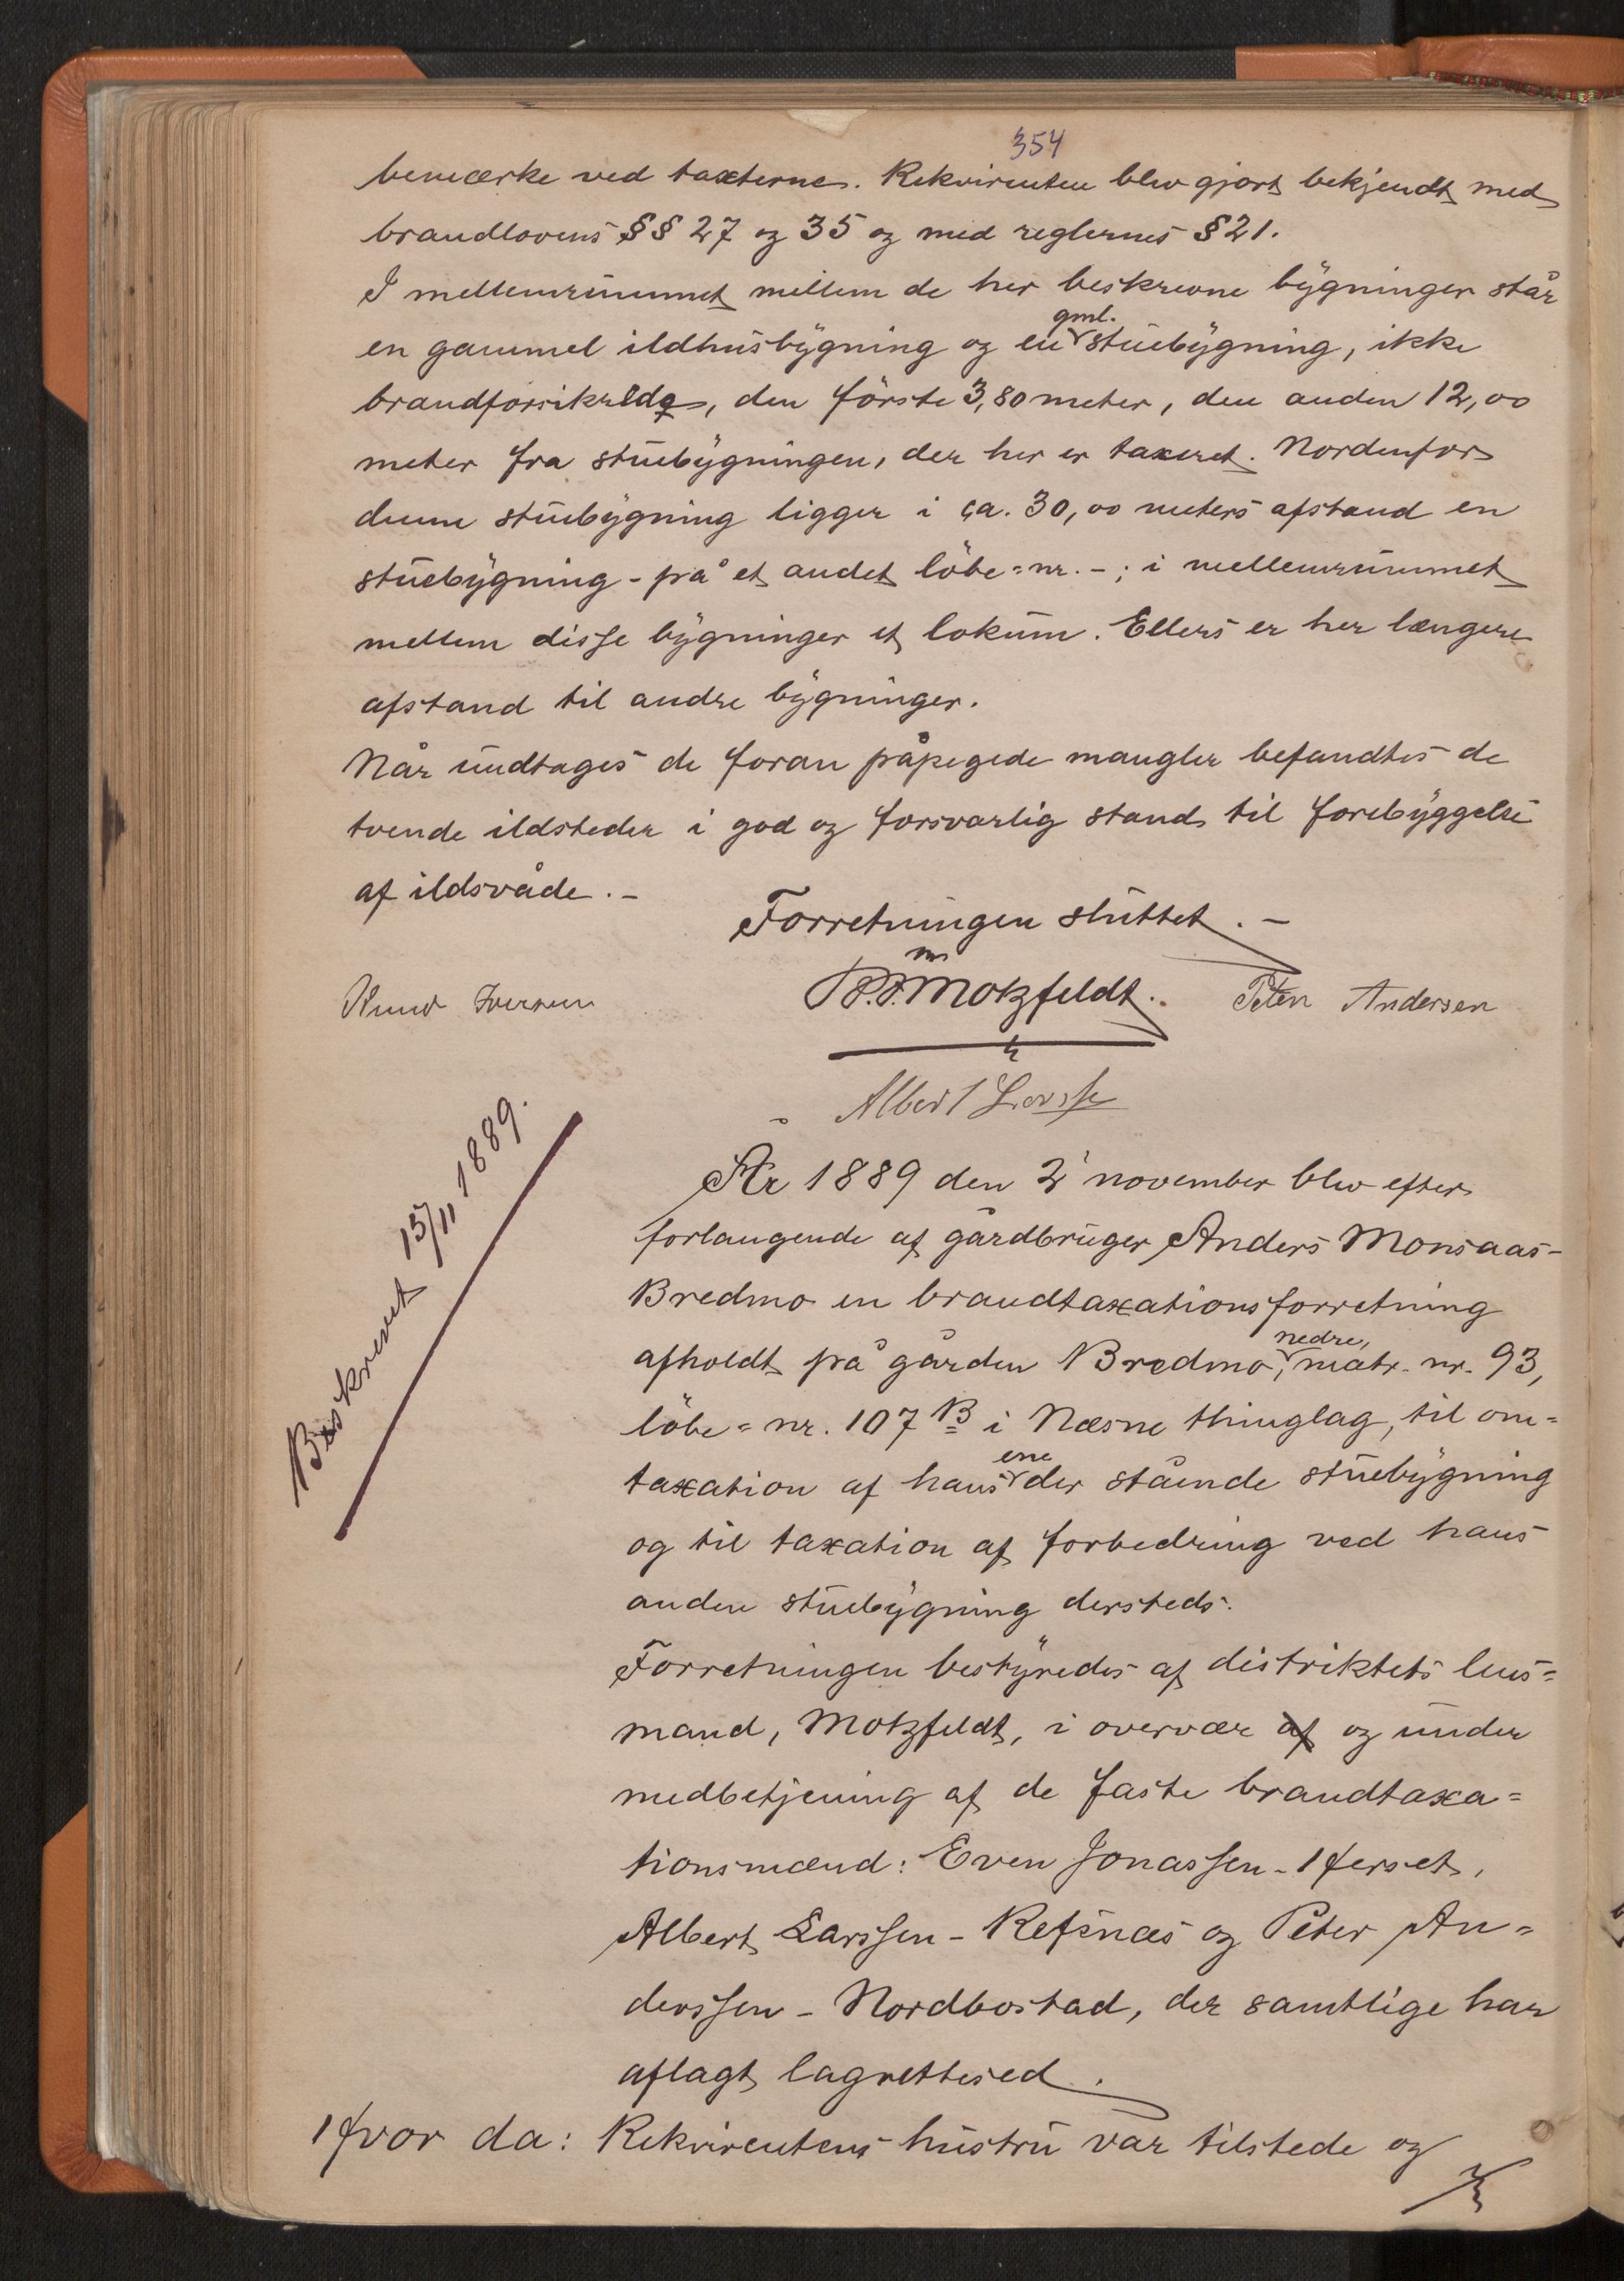 354
bemærke ved taxterne. Rekvirenten blev gjort bekjendt med
brandlovens §§ 27 og 35 og med reglernes § 21.
I mellemrummet mellem de her beskrevne bygninger står
en gammel ildhusbygning og en gml. stuebygning, ikke
brandforsikrede, den förste 3,80 meter, den anden 12,00
meter fra stuebygningen, der her er taxeret. Nordenfor
denne stuebygning ligger i ca. 30,00 meters afstand en
stuebygning - på et andet löbe=nr. -; i mellemrummet
mellem disse bygninger et lokum. Ellers er her længere
afstand til andre bygninger.
Når undtages de foran påpegede mangler befandtes de
tvende ildsteder i god og forsvarlig stand til forebyggelse
af ildsvåde. -
Forretningen sluttet. -
Knud Iversen P.F. Motzfeldt. Peter Andersen
Albert Larsse
Beskrevet 15/11 1889.
År 1889 den 2' november blev efter
forlangende af gårdbruger Anders Monsaas-
Bredmo en brandtaxationsforretning
afholdt på gården Bredmo, nedre, matr. nr. 93,
löbe=nr. 107 B i Næsne thinglag, til om=
taxation af hans ene der stående stuebygning
og til taxation af forbedring ved hans
anden stuebygning dersteds.
Forretningen bestyredes af distriktets lens=
mand, Motzfeldt, i overvær af og under
medbetjening af de faste brandtaxa=
tionsmænd: Even Jonassen - Herset,
Albert Larssen - Refsnæs og Peter An=
derssen - Nordbostad, der samtlige har
aflagt lagrettesed.
Hvor da: Rekvirentens hustru var tilstede og